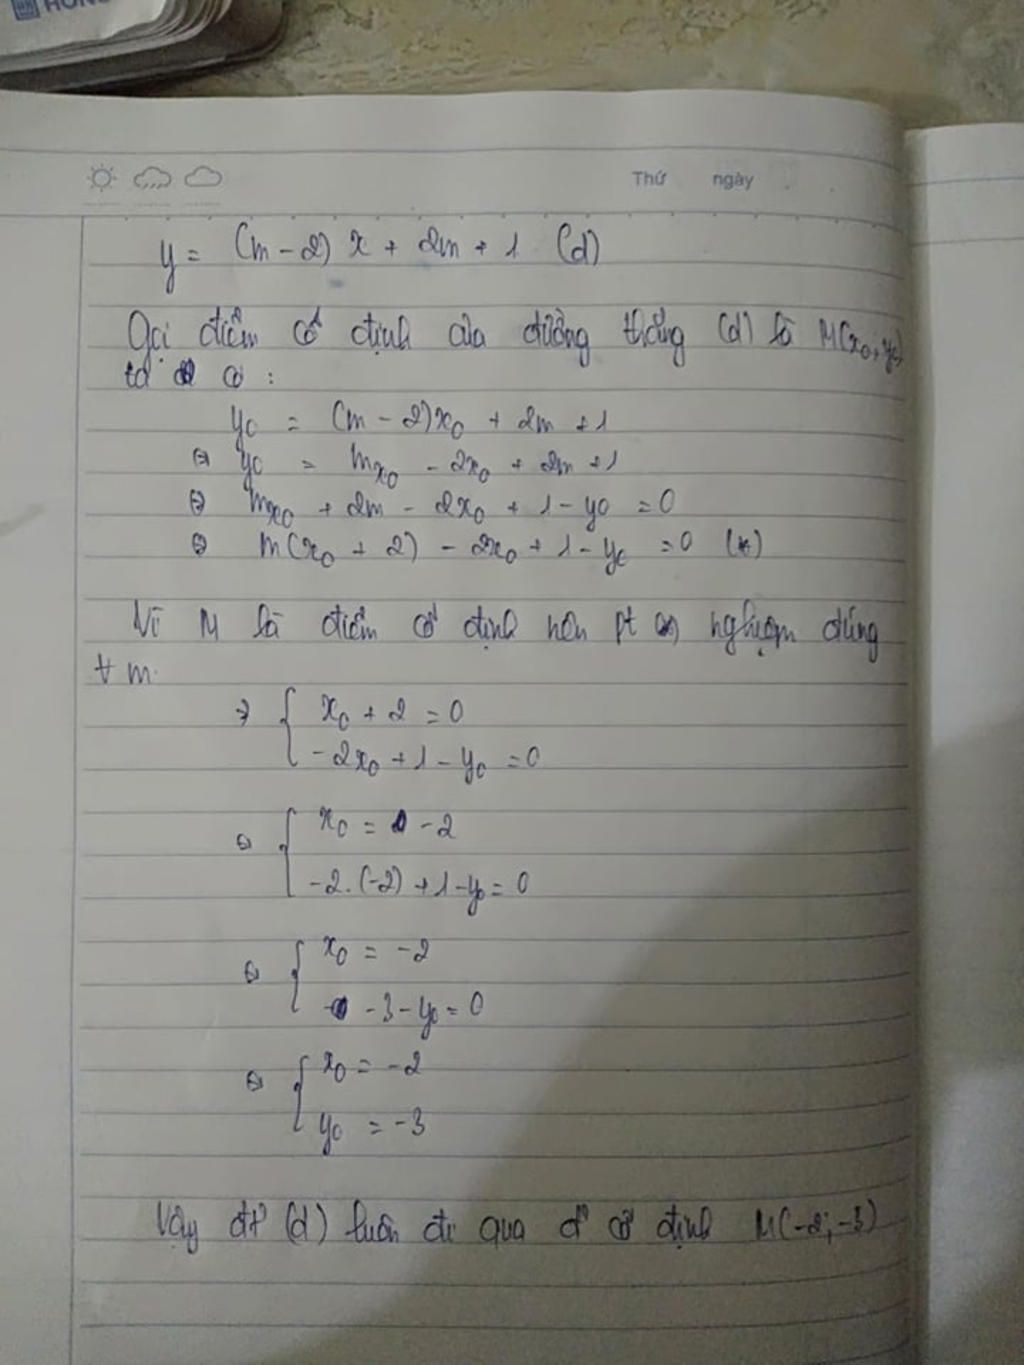 HONG
Thứ ngày
y = (m - 2) x + 2m + 1 (d)
Gọi điểm cố định của đường thẳng (d) là M(x₀; y₀)
ta có :
y₀ = (m - 2)x₀ + 2m + 1
⇔ y₀ = mx₀ - 2x₀ + 2m + 1
⇔ mx₀ + 2m - 2x₀ + 1 - y₀ = 0
⇔ m(x₀ + 2) - 2x₀ + 1 - y₀ = 0 (*)
Vì M là điểm cố định nên pt (*) nghiệm đúng
∀ m.
⇒ { x₀ + 2 = 0
-2x₀ + 1 - y₀ = 0
⇔ { x₀ = -2
-2.(-2) + 1 - y₀ = 0
⇔ { x₀ = -2
-3 - y₀ = 0
⇔ { x₀ = -2
y₀ = -3
Vậy đt (d) luôn đi qua đ' cố định M(-2; -3)